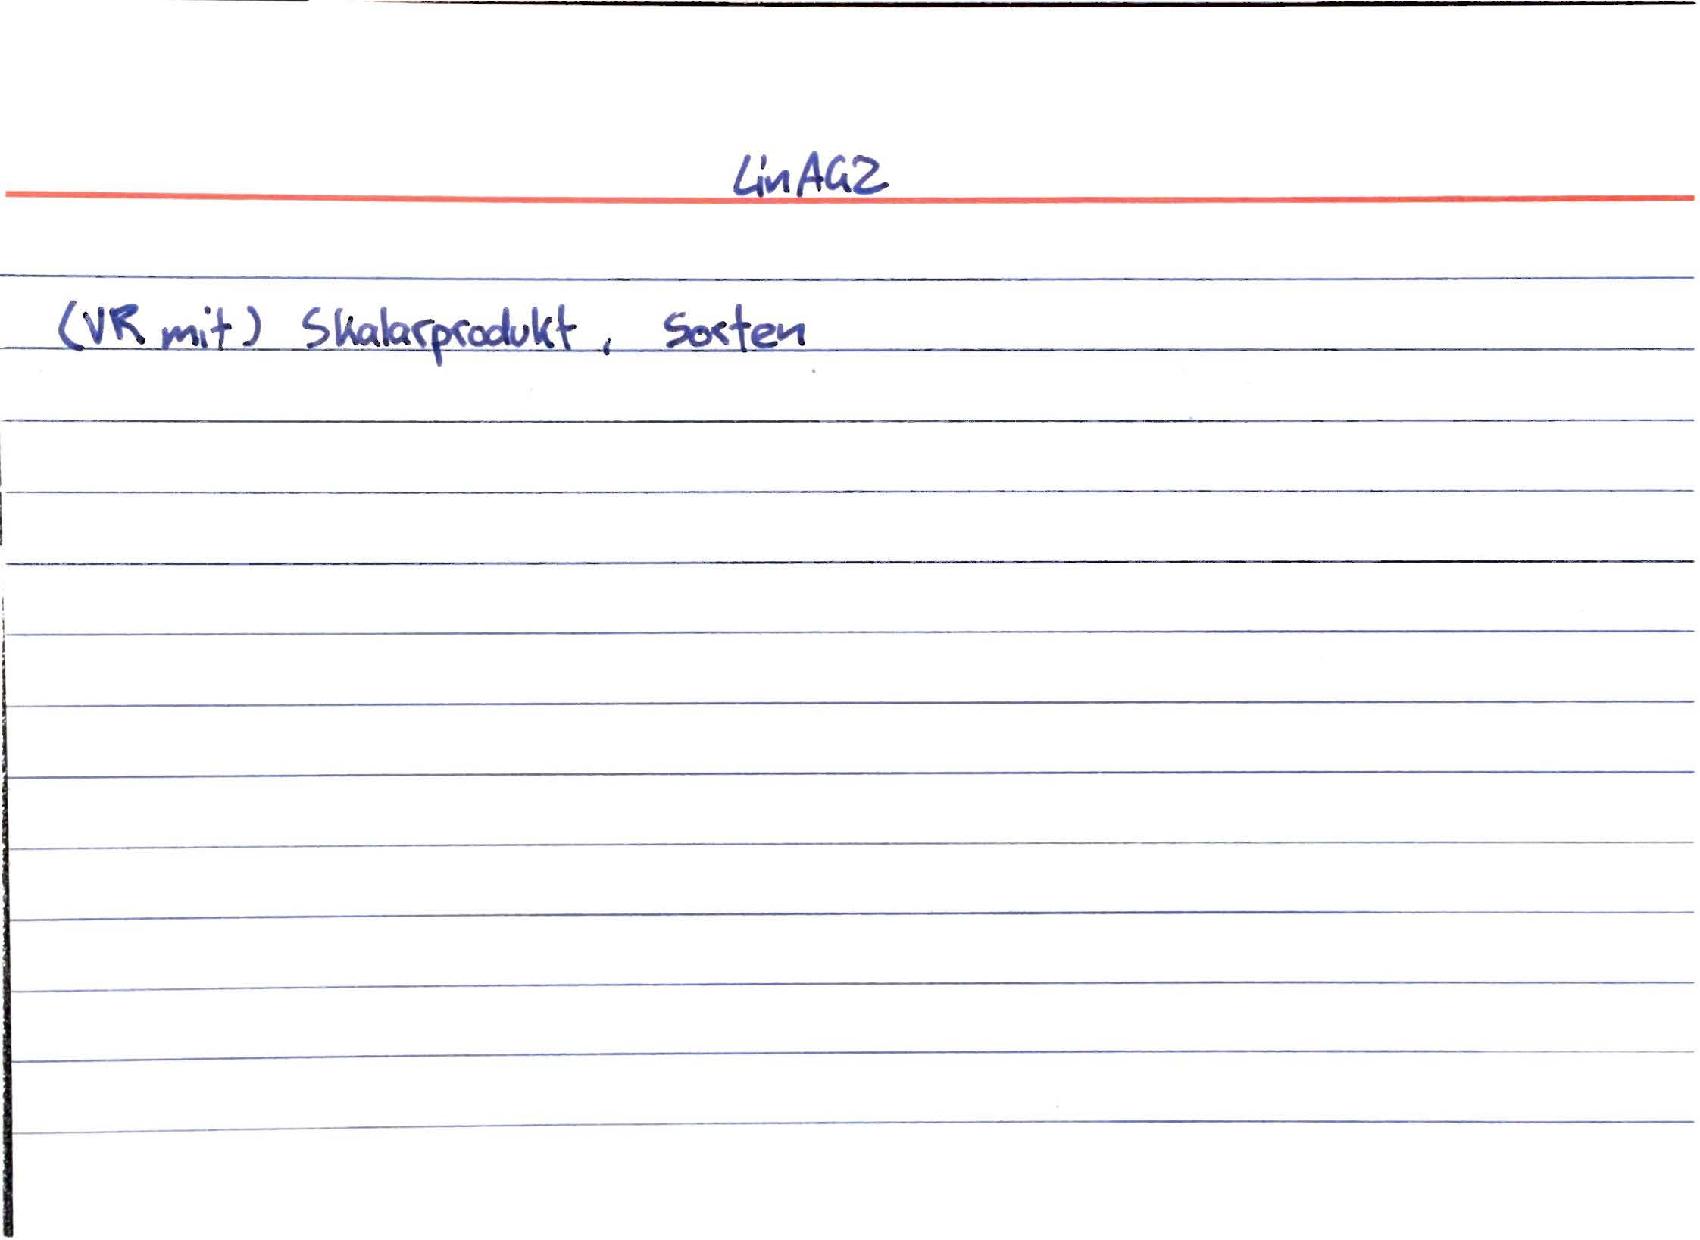 LinAG2
(VR mit) Skalarprodukt, Sorten